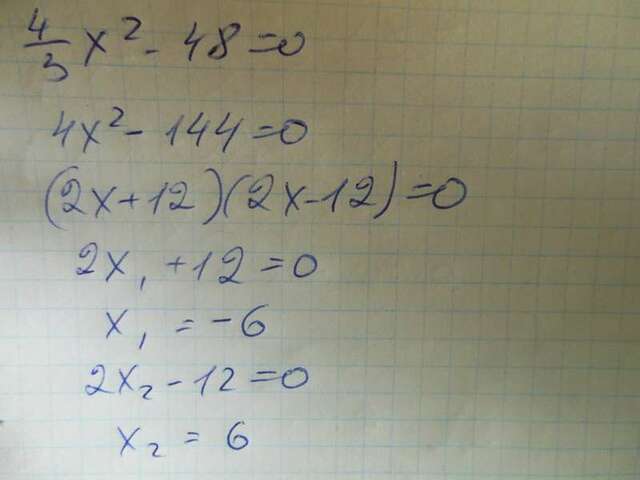 4/3 x² - 48 = 0
4x² - 144 = 0
(2x + 12)(2x - 12) = 0
2x₁ + 12 = 0
x₁ = -6
2x₂ - 12 = 0
x₂ = 6